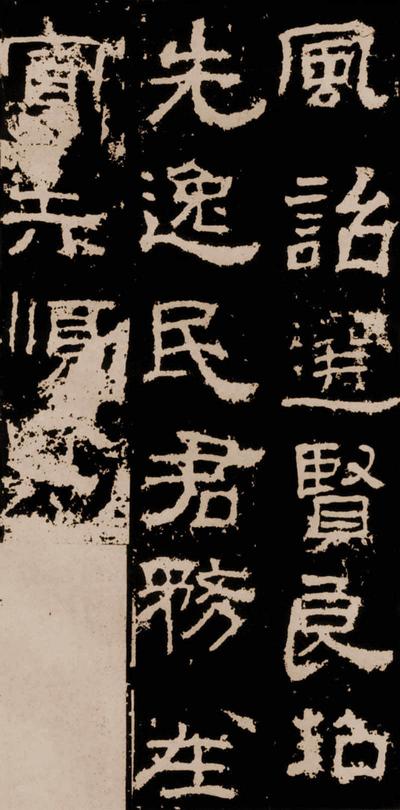 風詔選賢良招
先逸民君務在
寬失順